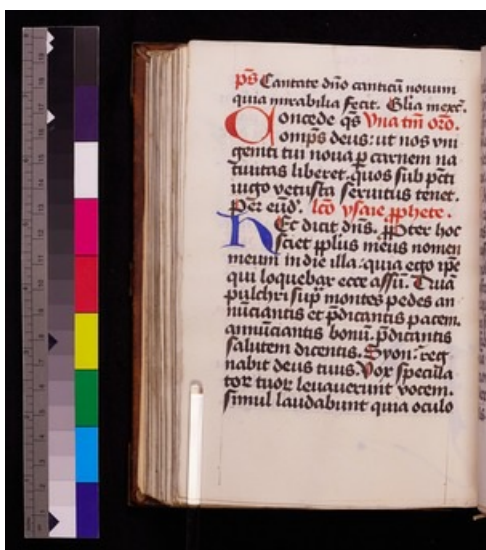 p̄s Cantate dn̄o canticū nouum
quia mirabilia fecit. Gl̄ia inexc̄.
Concede qs̄ Vna tm̄ or̄o.
omp̄s deus: ut nos vni
geniti tui noua p̱ carnem na
tiuitas liberet. quos sub pc̄ti
iugo vetusta seruitus tenet.
Per eūd'. lc̄o ysaie p̱phete.
Hec dicit dn̄s. p̱pter hoc
sciet pp̄lus meus nomen
meum in die illa: quia ego ip̄e
qui loquebar ecce assū. Quā
pulchri sup̱ montes pedes an
nūciantis et p̄dicantis pacem.
annūciantis bonū. p̄dicantis
salutem dicentis. Syon: reg
nabit deus tuus. Vox specula
tor tuor̄ leuauerunt vocem.
simul laudabunt quia oculo